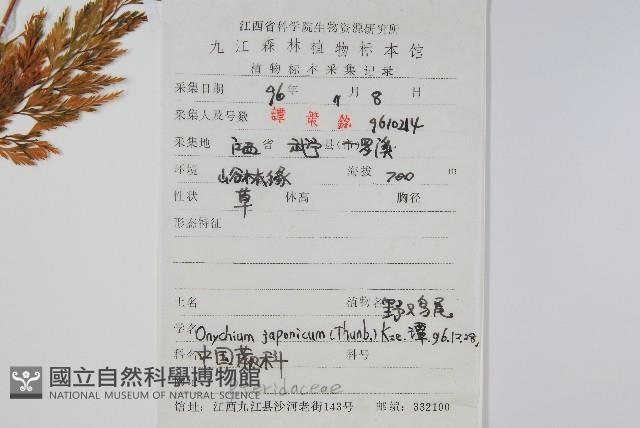 江西省科学院生物资源研究所
九江森林植物标本馆
植物标本采集记录
采集日期 96年 月 8 日
采集人及号数 譚策銘 9610214
采集地 江西 省 武宁 县(市) 罗溪
环境 山谷林缘 海拔 700 m
性状 草 体高 胸径
形态特征
土名 植物名 野鸡尾
学名 Onychium japonicum (Thunb.) Kze. 譚.96.12.28,
科名 中国蕨科 科号
Pteridaceae
國立自然科學博物館
NATIONAL MUSEUM OF NATURAL SCIENCE
馆址: 江西九江县沙河老街143号 邮编: 332100